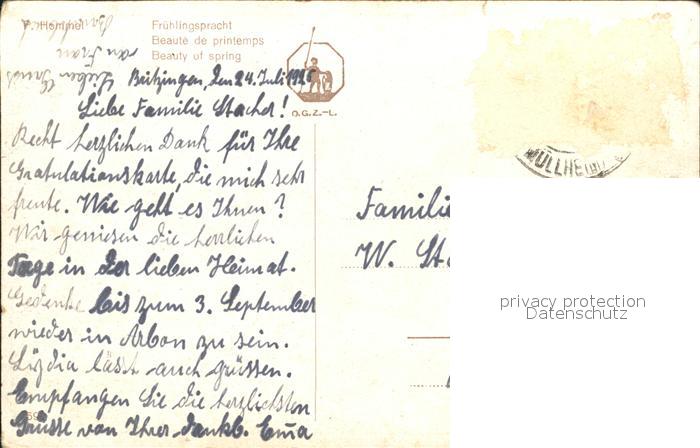 F. Hommel
Frühlingspracht
Beauté de printemps
Beauty of spring
O.G.Z.-L.
Lieben Gruss
von Frau
Britzingen, den 24. Juli 1925
Liebe Familie Stacher!
Recht herzlichen Dank für Ihre
Gratulationskarte, die mich sehr
freute. Wie geht es Ihnen?
Wir geniesen die herrlichen
Tage in der lieben Heimat.
Gedenke bis zum 3. September
wieder in Arbon zu sein.
Lÿdia lässt auch grüssen.
Empfangen Sie die herzlichsten
Grüsse von Ihrer dankb. Em̄a
MÜLLHEIM
Familie
W. St
privacy protection
Datenschutz